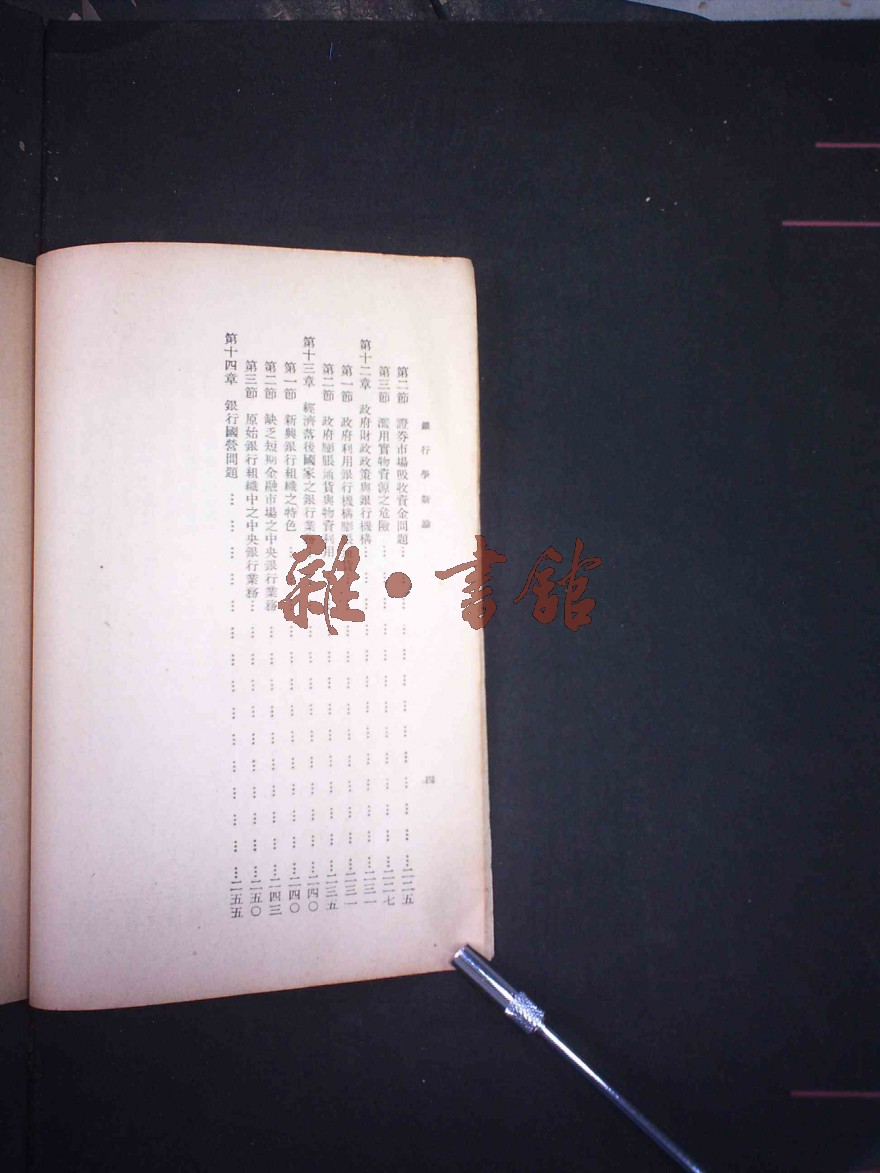 銀行學新論
四
第二節 證券市場吸收資金問題……二二五
第三節 濫用實物資源之危險……二二七
第十二章 政府財政政策與銀行機構……二三一
第一節 政府利用銀行機構膨脹……二三一
第二節 政府膨脹通貨與物資利用……二三五
第十三章 經濟落後國家之銀行業……二四〇
第一節 新興銀行組織之特色……二四〇
第二節 缺乏短期金融市場之中央銀行業務……二四三
第三節 原始銀行組織中之中央銀行業務……二五〇
第十四章 銀行國營問題……二五五
雜·書館